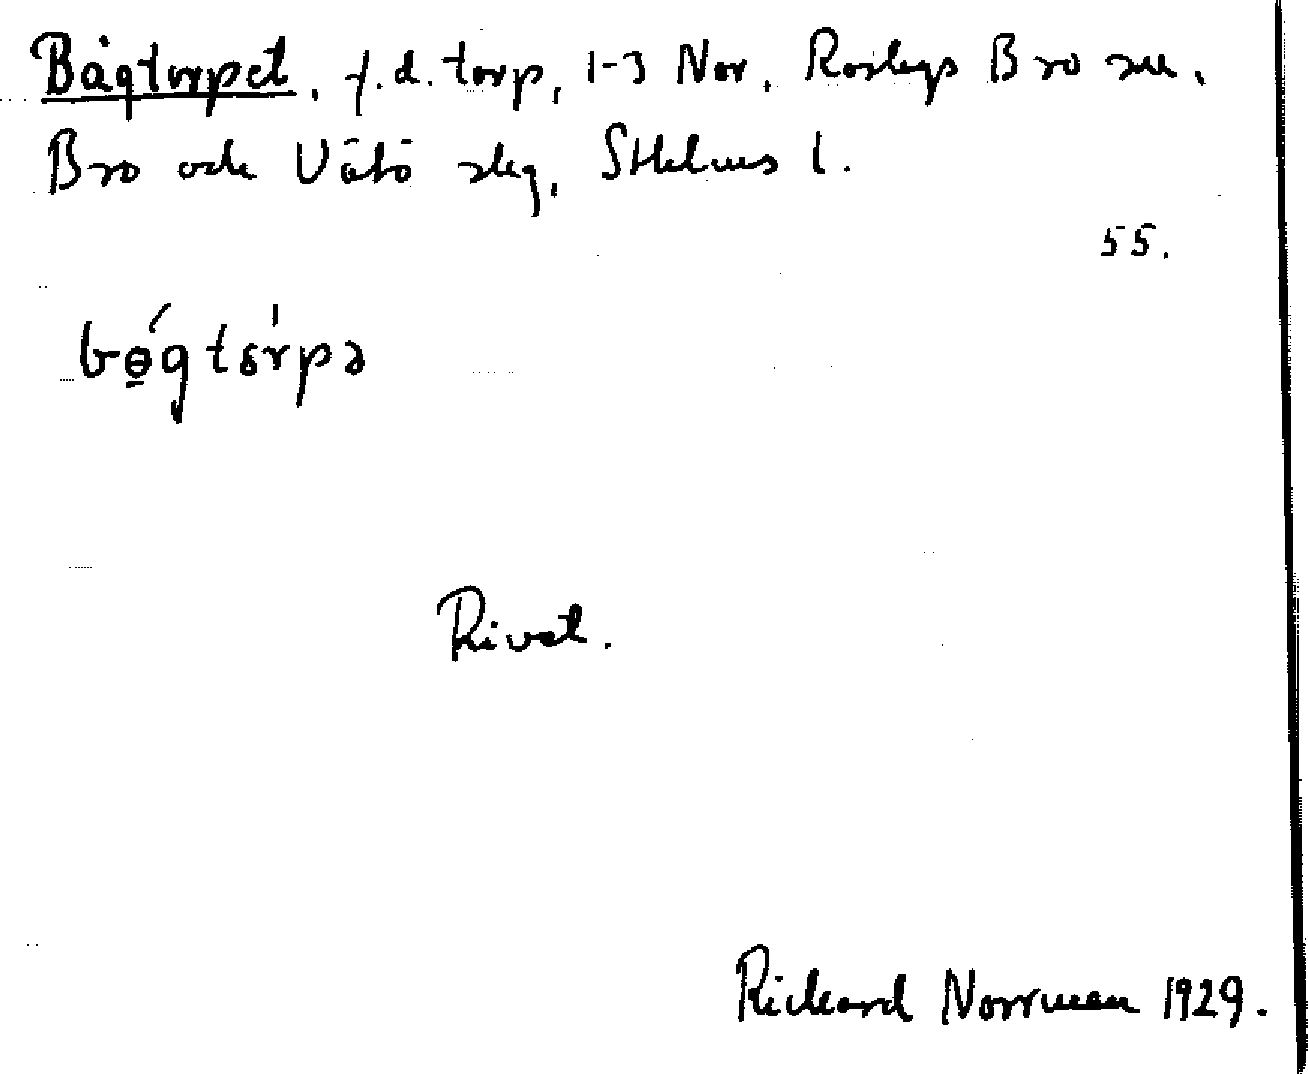 Bågtorpet, f.d. torp, 1-3 Nor, Roslags Bro sn,
Bro och Vätö slg, Sthlms l.
55.
bɵ̱́gtɞr̍pə
Rivet.
Rickard Norrman 1929.